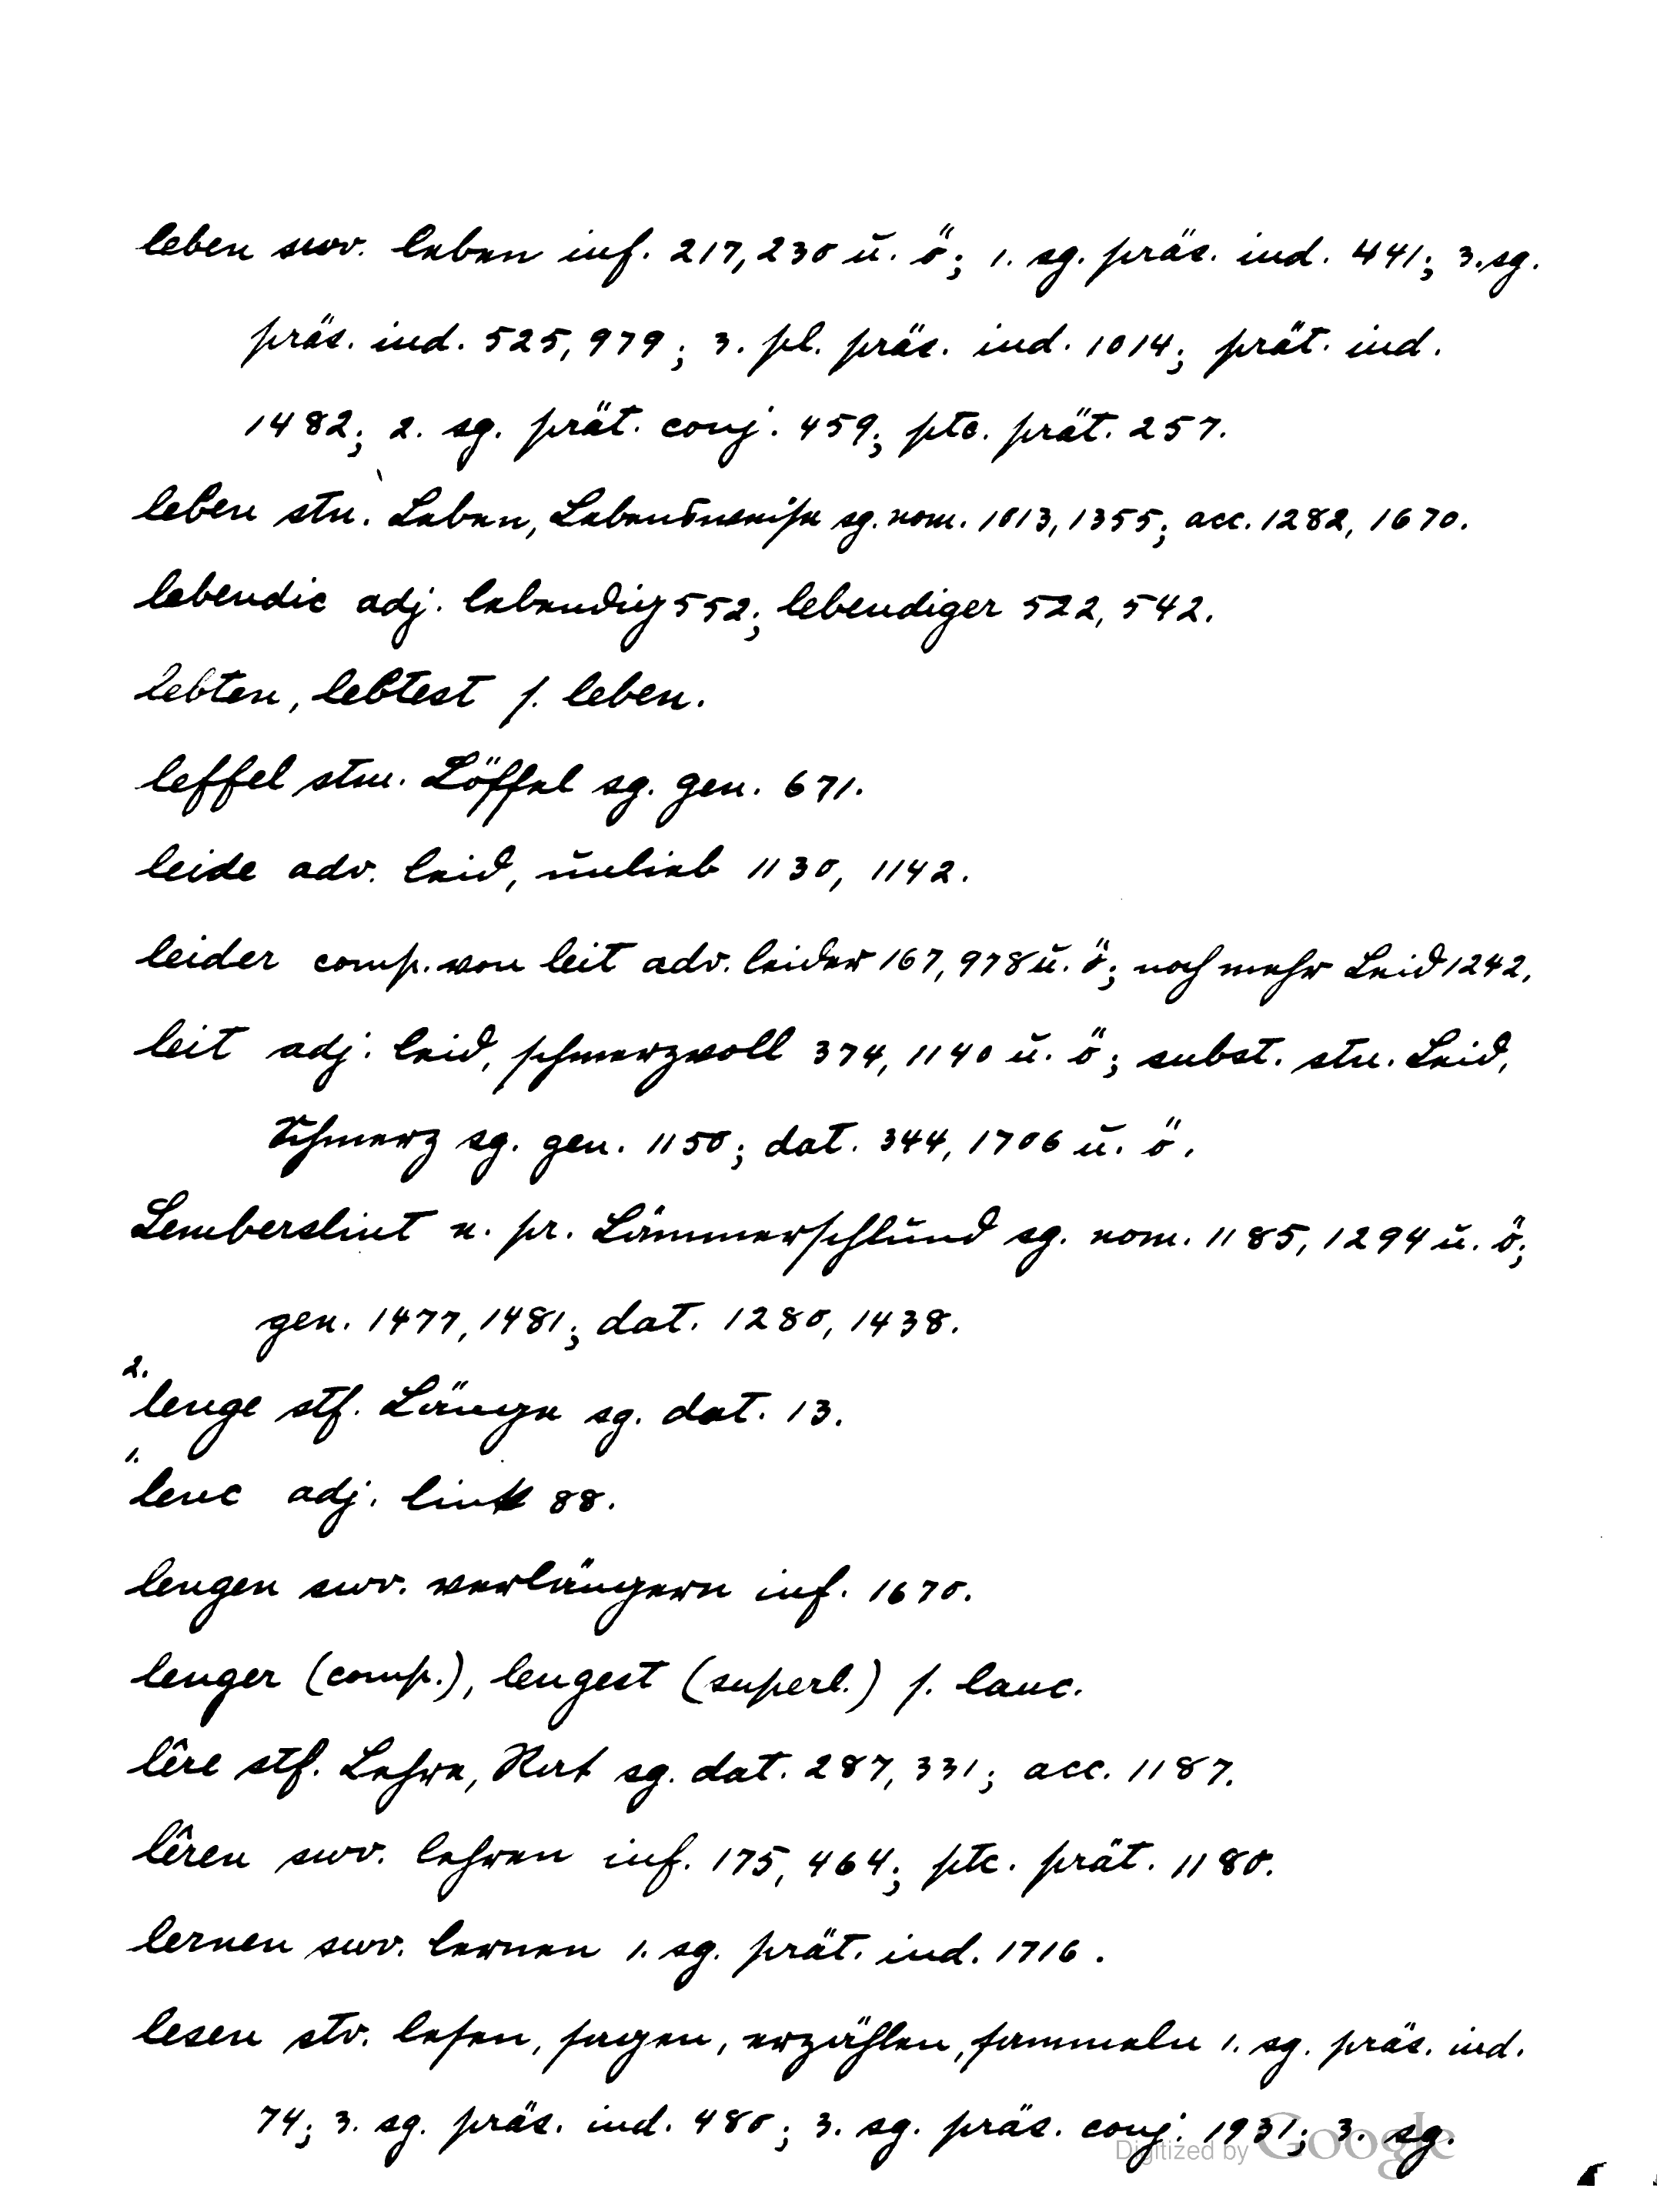 leben swv. leben inf. 217, 230 u. ö; 1. sg. präs. ind. 441; 3. sg.
präs. ind. 525, 979; 3. pl. präs. ind. 1014; prät. ind.
1482; 2. sg. prät. conj. 459; ptc. prät. 257.
leben stn. Leben, Lebensweise sg. nom. 1013, 1355; acc. 1282, 1670.
lebendic adj. lebendig 552; lebendiger 522, 542.
lebten, lebtest s. leben.
leffel stm. Löffel sg. gen. 671.
leide adv. leid, unlieb 1130, 1142.
leider comp. von leit adv. leider 167, 978 u. ö; noch mehr Leid 1242.
leit adj. leid, schmerzvoll 374, 1140 u. ö; subst. stn. Leid,
Schmerz sg. gen. 1150; dat. 344, 1706 u. ö.
Lemberslint n. pr. Lämmerschlund sg. nom. 1185, 1294 u. ö;
gen. 1477, 1481; dat. 1280, 1438.
2. lenge stf. Länge sg. dat. 13.
1. lenc adj. link 88.
lengen swv. verlängern inf. 1670.
lenger (comp.), lengest (superl.) s. lanc.
lêre stf. Lehre, Rat sg. dat. 287, 331; acc. 1187.
lêren swv. lehren inf. 175, 464; ptc. prät. 1180.
lernen swv. lernen 1. sg. prät. ind. 1716.
lesen stv. lesen, sagen, erzählen, sammeln 1. sg. präs. ind.
74; 3. sg. präs. ind. 480; 3. sg. präs. conj. 1931; 3. sg.
Digitized by Google